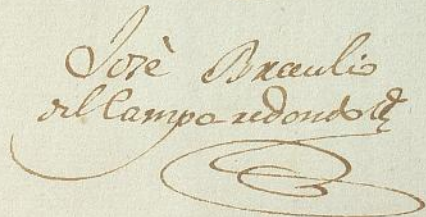 Josè Braulio
del Camporedondo